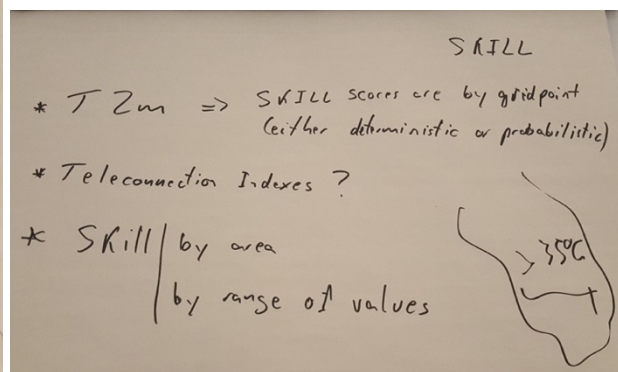 SKILL
* T2m => SKILL scores are by gridpoint
(either deterministic or probabilistic)
* Teleconnection Indexes ?
* Skill by area
by range of values
> 35ºC